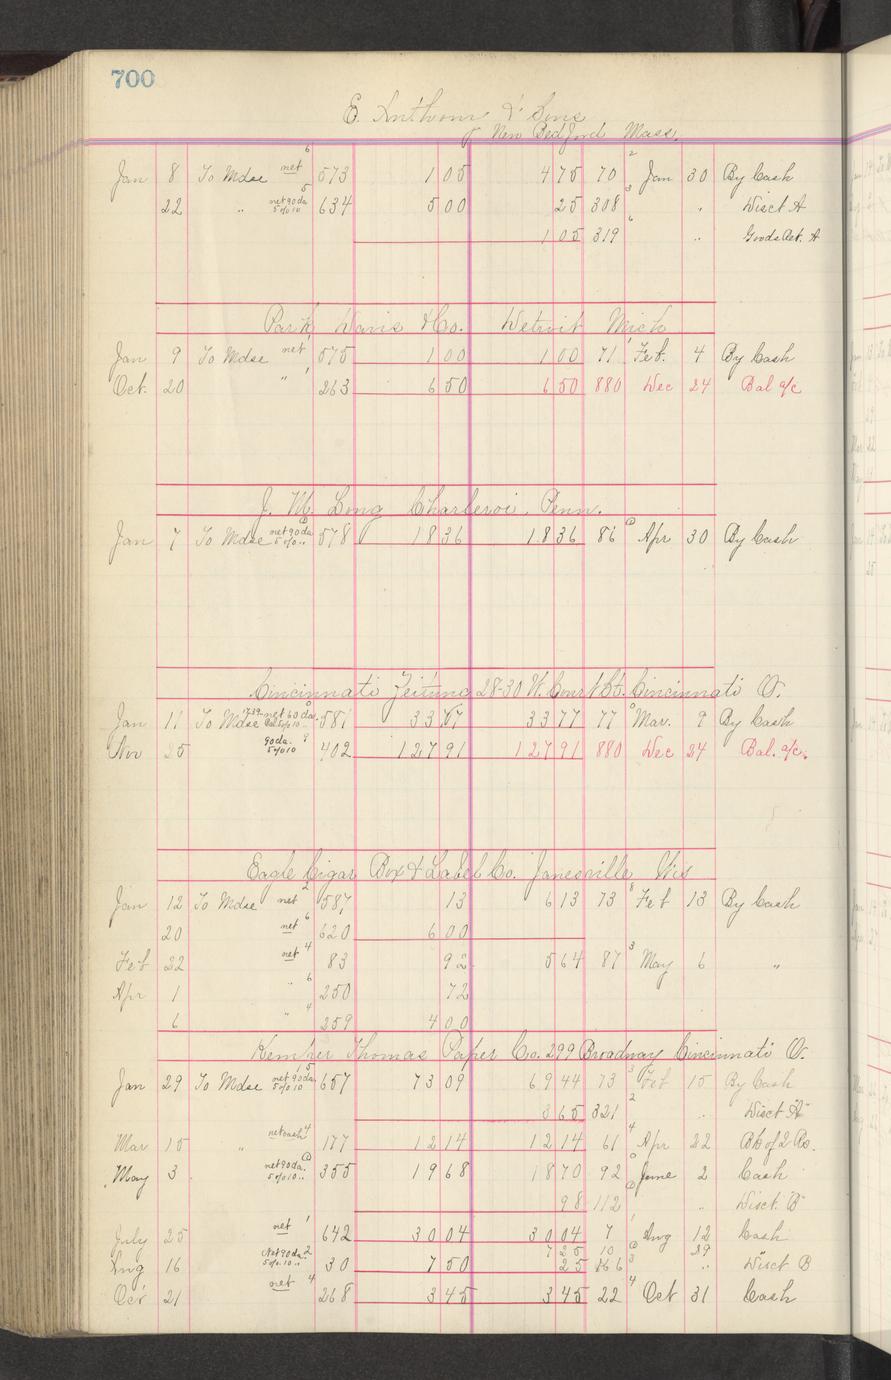 700
E. Anthony & Sons
New Bedford Mass.
Jan 8 To Mdse net 6 573 1 05 4 75 70 2 Jan 30 By Cash
22 " net 90 da 5% 10 5 634 5 00 25 308 3 " Disct A
1 05 319 6 " Goods Ret. A
Park Davis & Co. Detroit Mich
Jan 9 To Mdse net 1 575 1 00 1 00 71 1 Feb. 4 By Cash
Oct. 20 " 1 263 6 50 6 50 880 Dec 24 Bal a/c
J. M. Long Charleroi, Penn.
Jan 7 To Mdse net 90 da 5% 0 " 578 18 36 18 36 86 Apr 30 By Cash
Cincinnati Zeitung 28-30 W. Court St. Cincinnati O.
Jan 11 To Mdse net 60 da. 5% 10 581 33 77 77 0 Mar. 9 By Cash
Nov 25 90 da. 5% 10 9 402 127 91 127 91 880 Dec 24 Bal. a/c.
Eagle Cigar Box & Label Co. Janesville Wis
Jan 12 To Mdse net 2 587 13 6 13 73 8 Feb 13 By Cash
20 net 6 620 6 00
Feb 22 net 4 83 92 5 64 87 3 May 6 "
Apr 1 " 6 250 72
6 " 4 259 4 00
Kemper Thomas Paper Co. 299 Broadway Cincinnati O.
Jan 29 To Mdse net 90 da. 5% 10 657 73 09 69 44 73 3 Feb 15 By Cash
3 65 321 2 " Disct "A"
Mar 15 " net cash 4 177 12 14 12 14 61 4 Apr 22 Bk of 2 Ro.
May 3 net 90 da. 5% 10 " 355 19 68 18 70 92 0 June 2 Cash
98 112 " Disct. B
July 25 net 1 642 30 04 30 04 7 1 Aug 12 Cash
7 25 10 29
Aug 16 Net 90 da. 2 5% 10 " 30 7 50 25 166 3 " Disct B
Oct 21 net 4 268 3 45 3 45 22 4 Oct 31 Cash